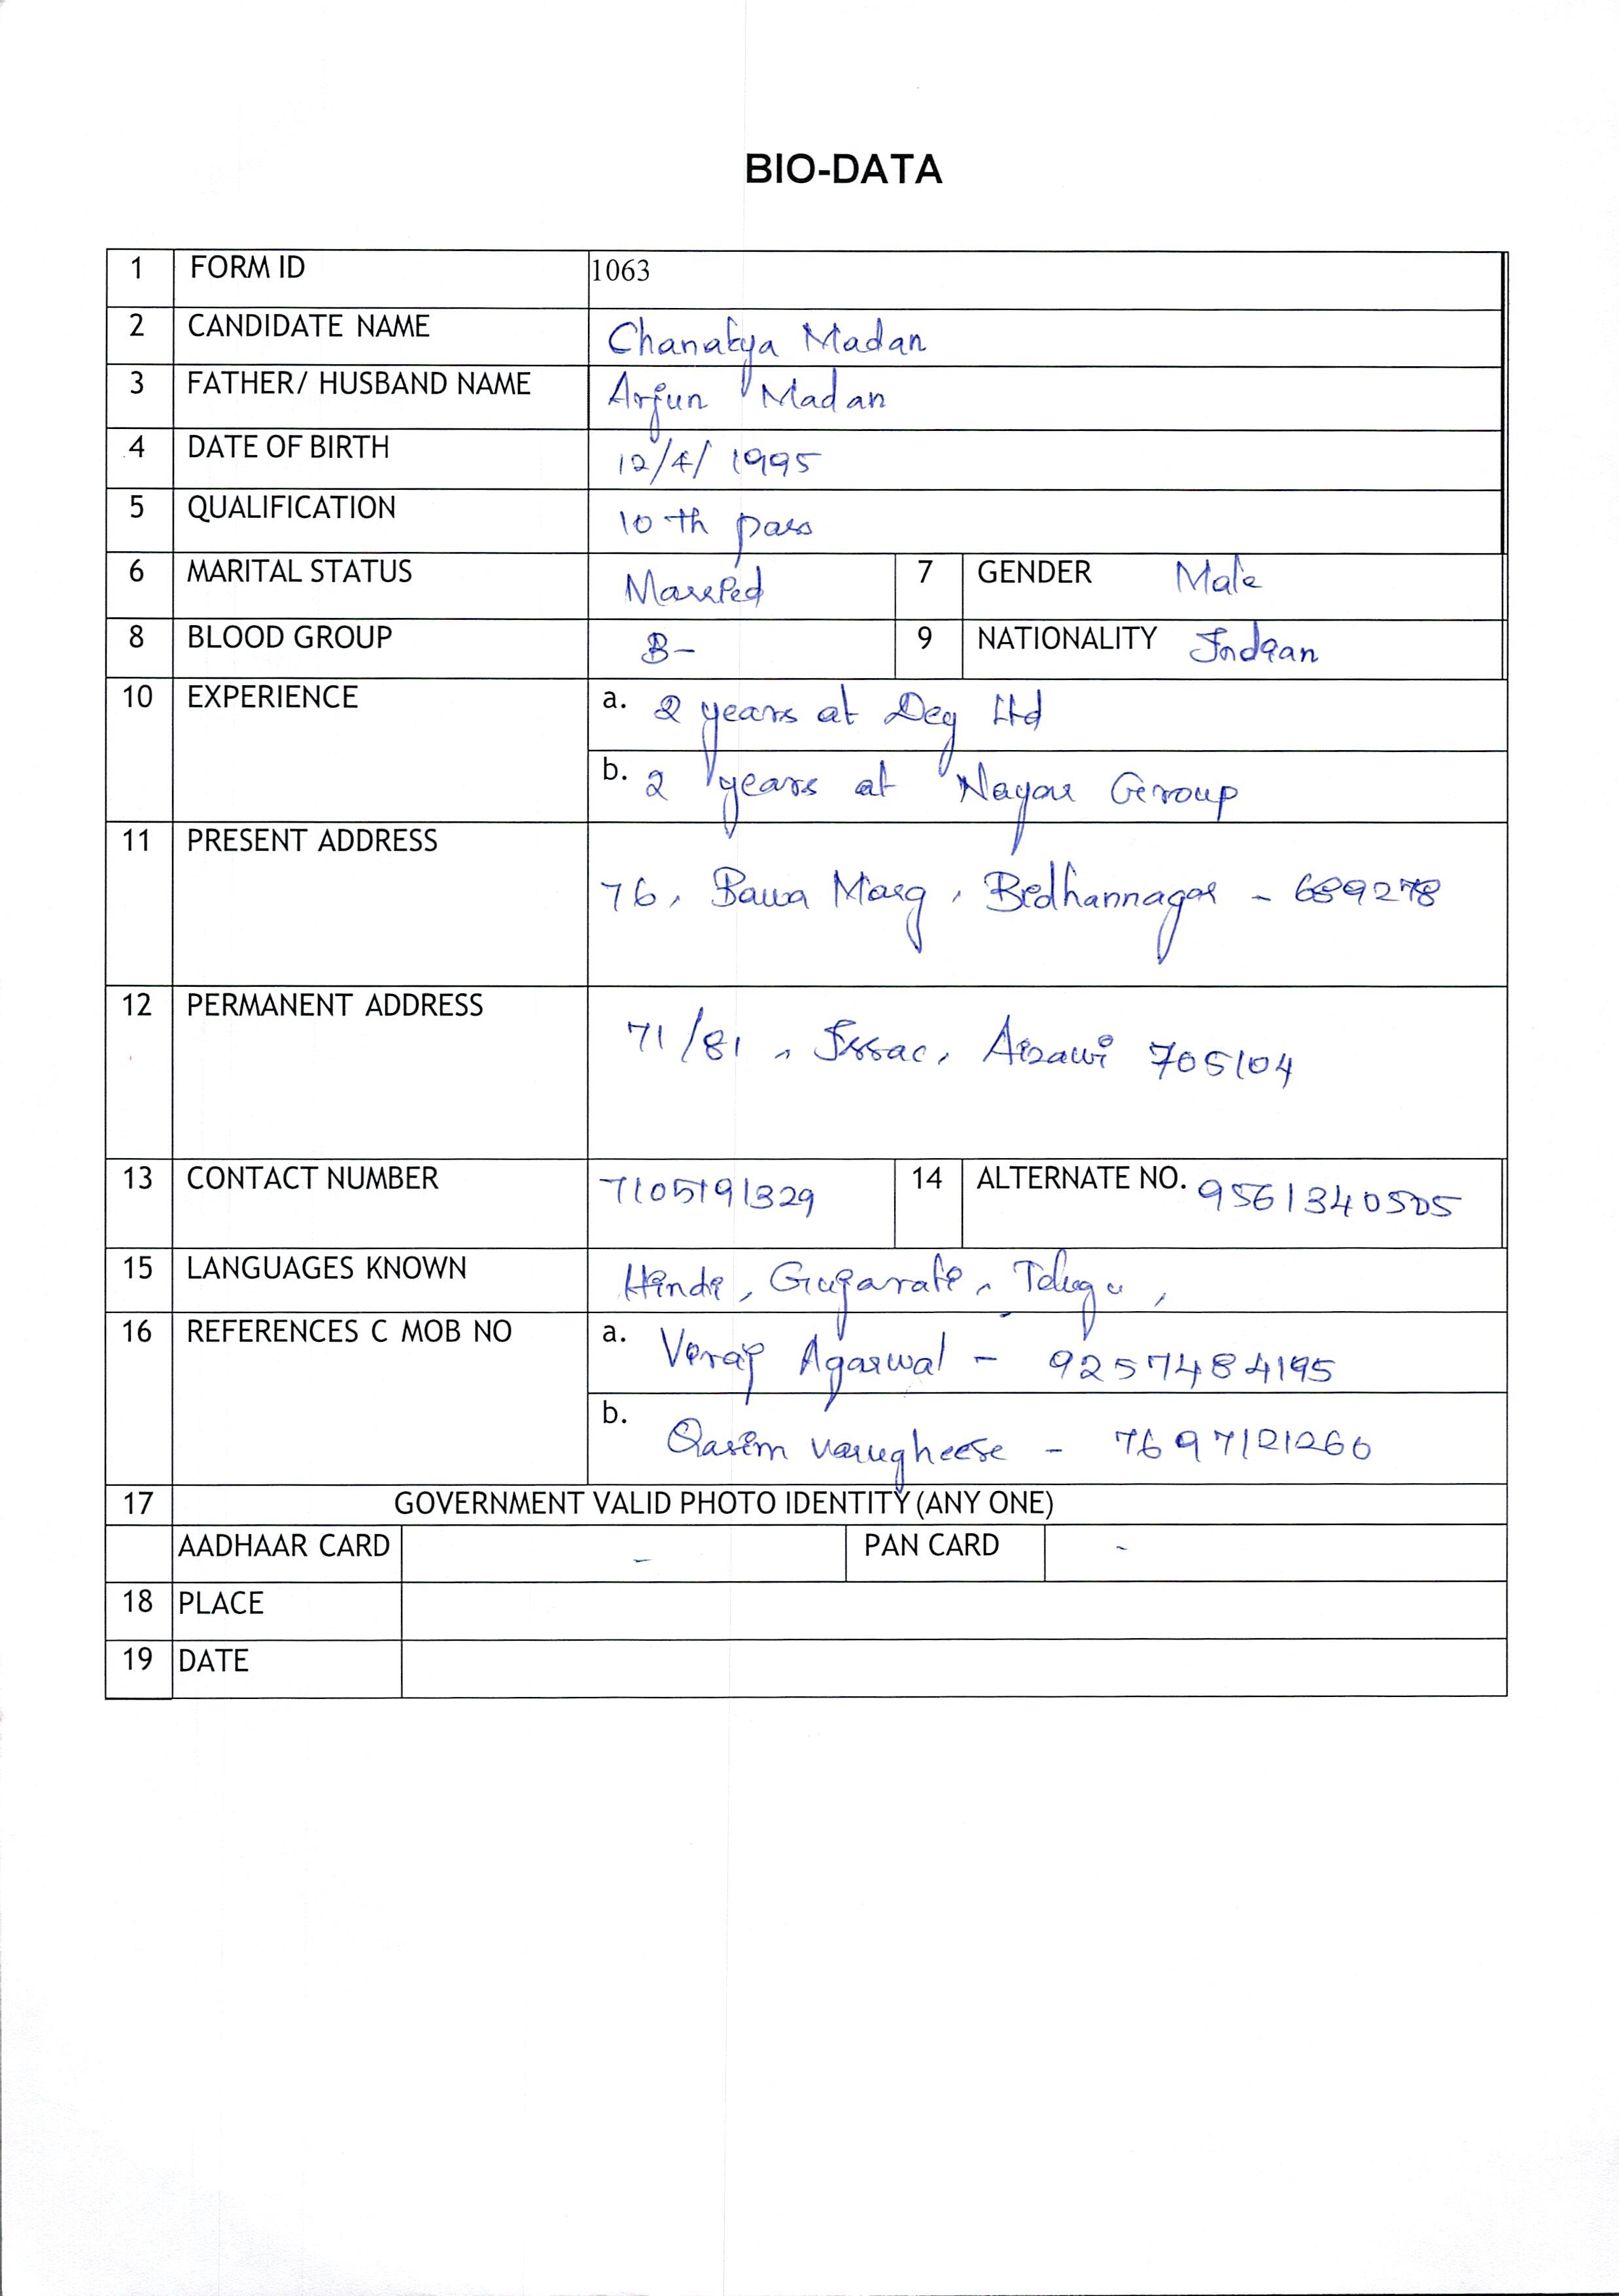 BIO-DATA
1 FORM ID 1063
2 CANDIDATE NAME Chanakya Madan
3 FATHER/ HUSBAND NAME Arjun Madan
4 DATE OF BIRTH 12/4/1995
5 QUALIFICATION 10 th pass
6 MARITAL STATUS Married 7 GENDER Male
8 BLOOD GROUP B- 9 NATIONALITY Indian
10 EXPERIENCE a. 2 years at Dey Ltd
b. 2 years at Nayar Group
11 PRESENT ADDRESS
76, Bawa Marg, Bidhannagar - 689278
12 PERMANENT ADDRESS
71/81, Issac, 705104
13 CONTACT NUMBER 7105191329 14 ALTERNATE NO. 9561340505
15 LANGUAGES KNOWN Hindi, Gujarati, Telugu,
16 REFERENCES C MOB NO a. Viraj Agarwal - 9257484195
b. Qasim Varugheese - 7697121260
17 GOVERNMENT VALID PHOTO IDENTITY (ANY ONE)
AADHAAR CARD - PAN CARD -
18 PLACE
19 DATE